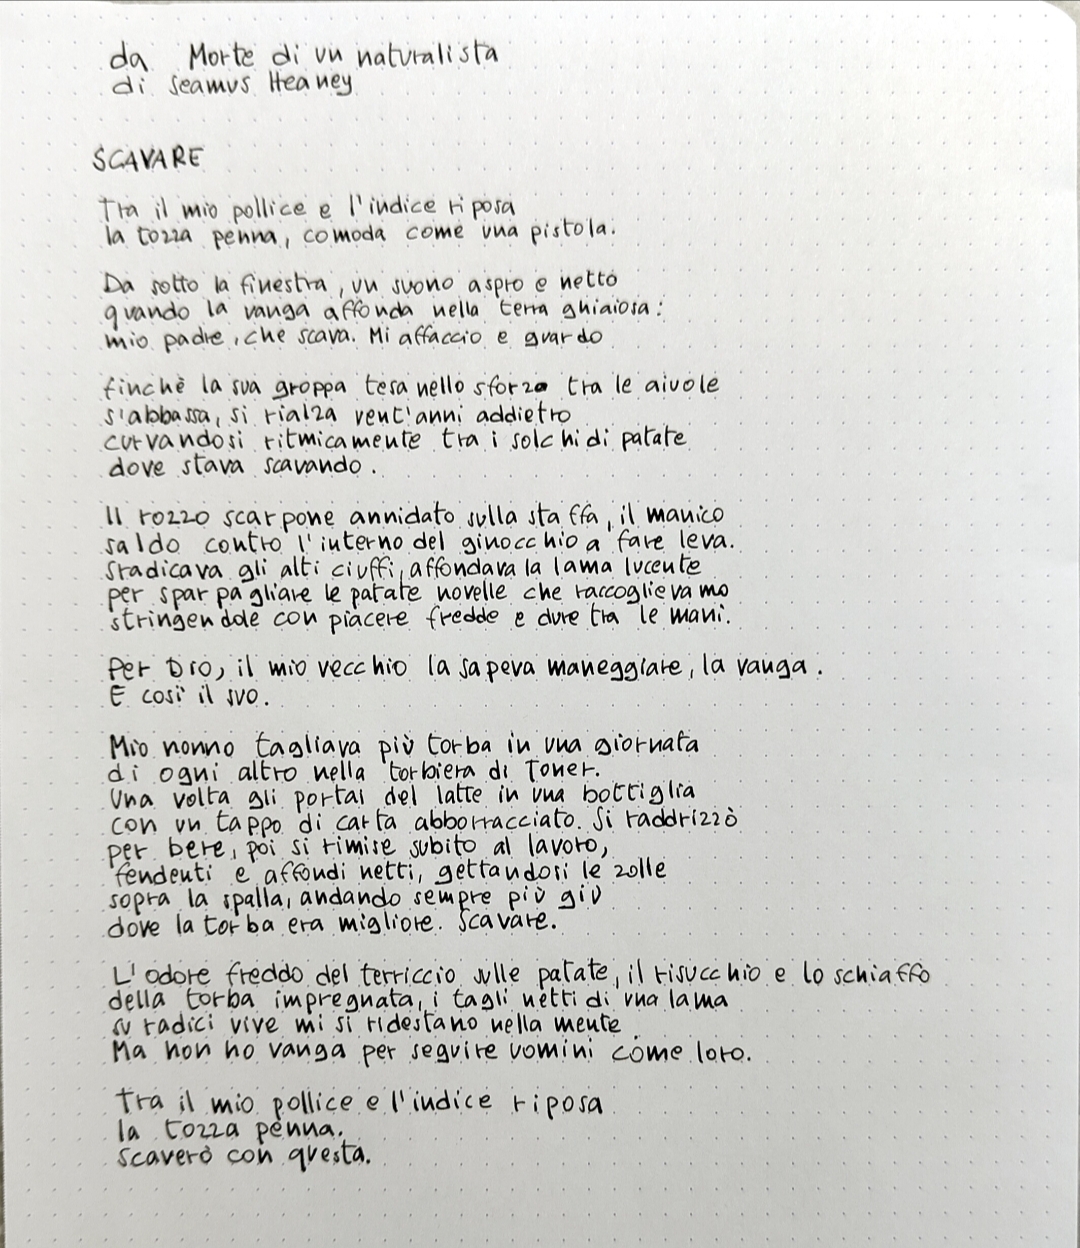 da Morte di un naturalista
di Seamus Heaney
SCAVARE
Tra il mio pollice e l'indice riposa
la tozza penna, comoda come una pistola.
Da sotto la finestra, un suono aspro e netto
quando la vanga affonda nella terra ghiaiosa:
mio padre, che scava. Mi affaccio e guardo
finchè la sua groppa tesa nello sforzo tra le aiuole
s'abbassa, si rialza vent'anni addietro
curvandosi ritmicamente tra i solchi di patate
dove stava scavando.
Il rozzo scarpone annidato sulla staffa, il manico
saldo contro l'interno del ginocchio a fare leva.
Sradicava gli alti ciuffi, affondava la lama lucente
per sparpagliare le patate novelle che raccoglievamo
stringendole con piacere fredde e dure tra le mani.
Per Dio, il mio vecchio la sapeva maneggiare, la vanga.
E così il suo.
Mio nonno tagliava più torba in una giornata
di ogni altro nella torbiera di Toner.
Una volta gli portai del latte in una bottiglia
con un tappo di carta abborracciato. Si raddrizzò
per bere, poi si rimise subito al lavoro,
fendenti e affondi netti, gettandosi le zolle
sopra la spalla, andando sempre più giù
dove la torba era migliore. Scavare.
L'odore freddo del terriccio sulle patate, il risucchio e lo schiaffo
della torba impregnata, i tagli netti di una lama
su radici vive mi si ridestano nella mente.
Ma non ho vanga per seguire uomini come loro.
Tra il mio pollice e l'indice riposa
la tozza penna.
Scaverò con questa.